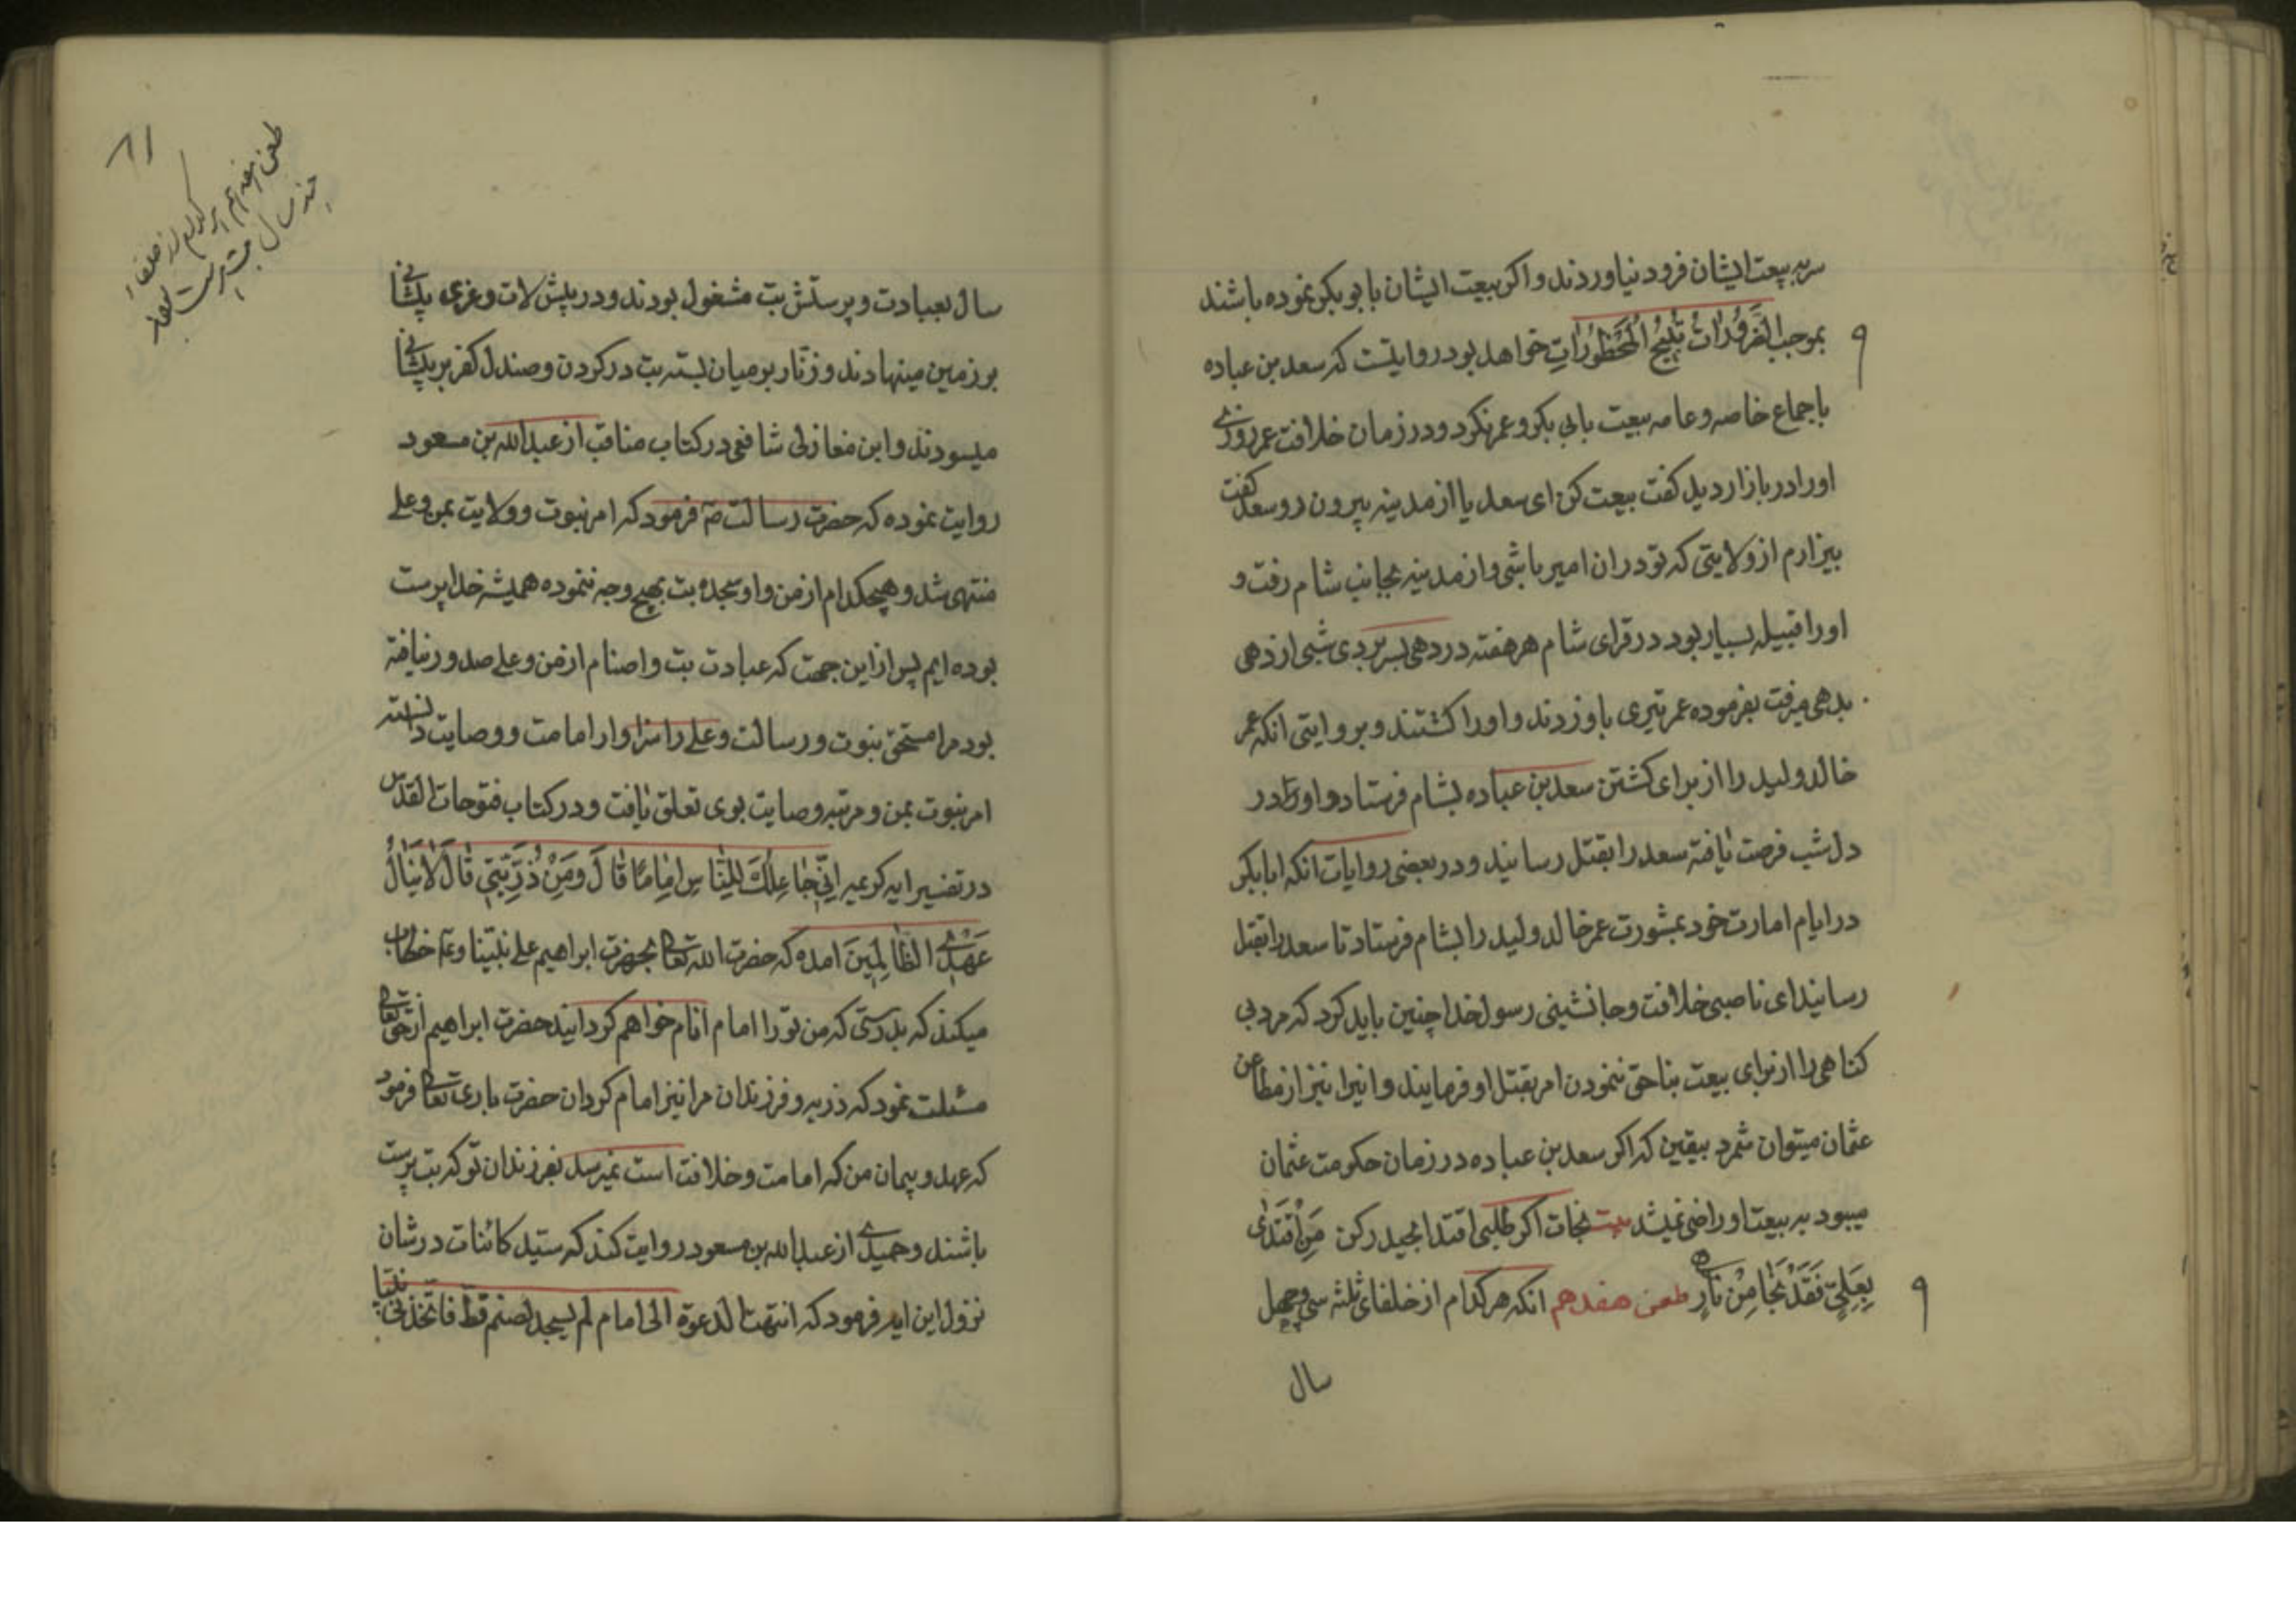 سر به بیعت ایشان فرود نیاوردند و اکر بیعت ایشان با بوبکر نموده باشند
بموجب الضَّرُورَاتُ تُبِیحُ الْمَحْظُورَاتِ خواهد بود در روایتست که سعد بن عباده
باجماع خاصه و عامه بیعت بابی بکر و عمر نکرد و در زمان خلافت عمر روزی
او را در بازار دید کفت بیعت کن ای سعد یا از مدینه بیرون رو سعد کفت
بیزارم از ولایتی که تو در ان امیر باشی و از مدینه بجانب شام رفت و
او را قبیله بسیار بود در قرای شام هر هفته در دهی بسر بردی شبی از دهی
بدهی میرفت بفرموده عمر تیری باو زدند و او را کشتند و بروایتی انکه عمر
خالد ولید را از برای کشتن سعد بن عباده بشام فرستاد و او را در
دل شب فرصت یافته سعد را بقتل رسانید و در بعضی روایات انکه ابابکر
در ایام امارت خود بمشورت عمر خالد ولید را بشام فرستاد تا سعد را بقتل
رساند ای ناصبی خلافت و جانشینی رسول خدا چنین باید کرد که مرد بی
کناهی را از برای بیعت بناحق ننمودن امر بقتل او فرمایند و انیرا نیز از مطاعن
عثمان میتوان شمرد بیقین که اکر سعد بن عباده در زمان حکومت عثمان
میبود به بیعت او راضی نمیشد بیت نجات اکر طلبی اقتدا بحیدر کن مَنِ اقْتَدٰی
بِعَلِیٍّ فَقَدْ نَجَا مِنْ نَارٍ طعن هفدهم انکه هر کدام از خلفای ثلثه سی و چهل
سال
٨١
طعن هفدهم هر کدام از خلفاء
چند سال بت پرست بودند
سال بعبادت و پرستش بت مشغول بودند و در پیش لات و عزی پیشانی
بر زمین مینهادند و زنار بر میان بسته بت در کردن و صندل کفر بر پیشانی
میسودند و ابن مغازلی شافعی در کتاب مناقب از عبدالله بن مسعود
روایت نموده که حضرت رسالت صم فرمود که امر نبوت و ولایت بمن و علی
منتهی شد و هیچکدام از من و او سجده بت بهیچ وجه ننموده همیشه خدا پرست
بوده ایم پس از این جهت که عبادت بت و اصنام از من و علی صدور نیافته
بود مرا مستحق نبوت و رسالت و علی را سزاوار امامت و وصایت دانسته
امر نبوت بمن و مرتبه وصایت بوی تعلق یافت و در کتاب فتوحات القدس
در تفسیر ایه کریمه اِنِّی جَاعِلُکَ لِلنَّاسِ اِمَامًا قَالَ وَمِنْ ذُرِّیَّتِی قَالَ لَا یَنَالُ
عَهْدِی الظَّالِمِینَ امده که حضرت الله تعالی بحضرت ابراهیم علی نبینا و عم خطاب
میکند که بدرستی که من تو را امام انام خواهم کردانید حضرت ابراهیم از حق تعالی
مسئلت نمود که ذریه و فرزندان مرا نیز امام کردان حضرت باری تعالی فرمود
که عهد و پیمان من که امامت و خلافت است نمیرسد بفرزندان تو که بت پرست
باشند و حمیدی از عبدالله بن مسعود روایت کند که سید کائنات در شان
نزول این ایه فرمود که انتهت الدعوة الی امام لم یسجد لصنم قط فاتخذنی نبیا